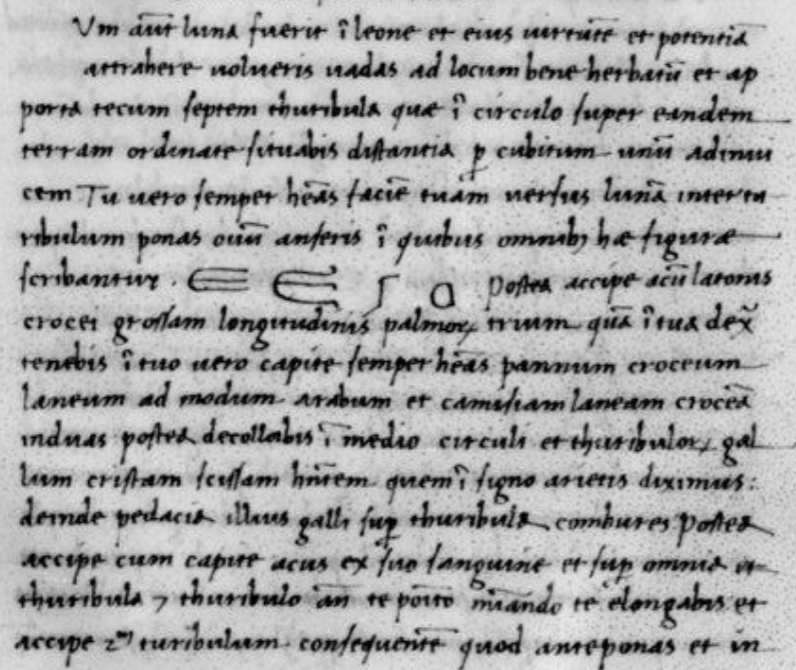 Vm aūt luna fuerit ī leone et eius uirtutē et potentiā
attrahere uolueris uadas ad locum bene herbatū et ap
porta tecum septem thuribula quæ ī circulo super eandem
terram ordinate situabis distantia p cubitum unū adinui
cem Tu uero semper heās faciē tuam uersus lunā inter tu
ribulum ponas ouū anseris ī quibus omnibꝫ hæ figuræ
scribantur. Postea accipe acū latonis
crocei grossam longitudinis palmoꝝ trium quā ī tua dex̄
tenebis ī tuo uero capite semper heās pannum croceum
laneum ad modum arabum et camisiam laneam croceā
induas postea decollabis ī medio circuli et thuribuloꝝ gal
lum cristam scissam hn̄tem quem ī signo arietis diximus:
deinde pedacia illius galli sup thuribula combures Postea
accipe cum capite acus ex suo sanguine et sup omnia et
thuribula ⁊ thuribulo an̄ te poīto mīando te elongabis et
accipe 2m turibulum consequentē quod anteponas et in